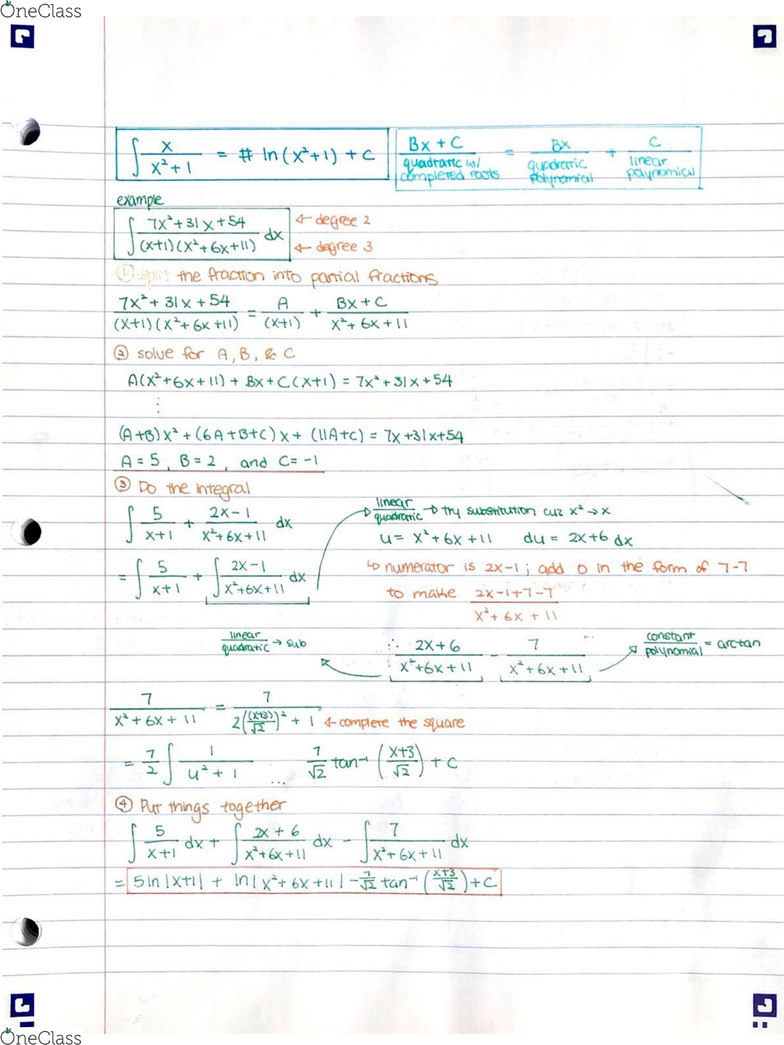 OneClass
∫ x/(x²+1) = # ln(x²+1) + C
(Bx + C)/(quadratic w/ completed roots) = Bx/(quadratic polynomial) + C/(linear polynomial)
example
∫ (7x²+31x+54)/((x+1)(x²+6x+11)) dx ← degree 2 ← degree 3
① split the fraction into partial fractions
(7x²+31x+54)/((x+1)(x²+6x+11)) = A/(x+1) + (Bx+C)/(x²+6x+11)
② solve for A, B, & C
A(x²+6x+11) + Bx+C(x+1) = 7x²+31x+54
⋮
(A+B)x² + (6A+B+C)x + (11A+C) = 7x+31x+54
A = 5, B = 2, and C = -1
③ Do the integral
∫ 5/(x+1) + (2x-1)/(x²+6x+11) dx
linear/quadratic → try substitution cuz x² → x
u = x²+6x+11 du = 2x+6 dx
= ∫ 5/(x+1) + ∫ (2x-1)/(x²+6x+11) dx
↳ numerator is 2x-1; add 0 in the form of 7-7
to make (2x-1+7-7)/(x²+6x+11)
linear/quadratic → sub
∴ (2x+6)/(x²+6x+11) - 7/(x²+6x+11)
constant/polynomial = arctan
7/(x²+6x+11) = 7/(2((x+3)/√2)² + 1) ← complete the square
= 7/2 ∫ 1/(u²+1) ... 7/√2 tan⁻¹ ((x+3)/√2) + C
④ Put things together
∫ 5/(x+1) dx + ∫ (2x+6)/(x²+6x+11) dx - ∫ 7/(x²+6x+11) dx
= 5 ln|x+1| + ln|x²+6x+11| - 7/√2 tan⁻¹ ((x+3)/√2) + C
OneClass